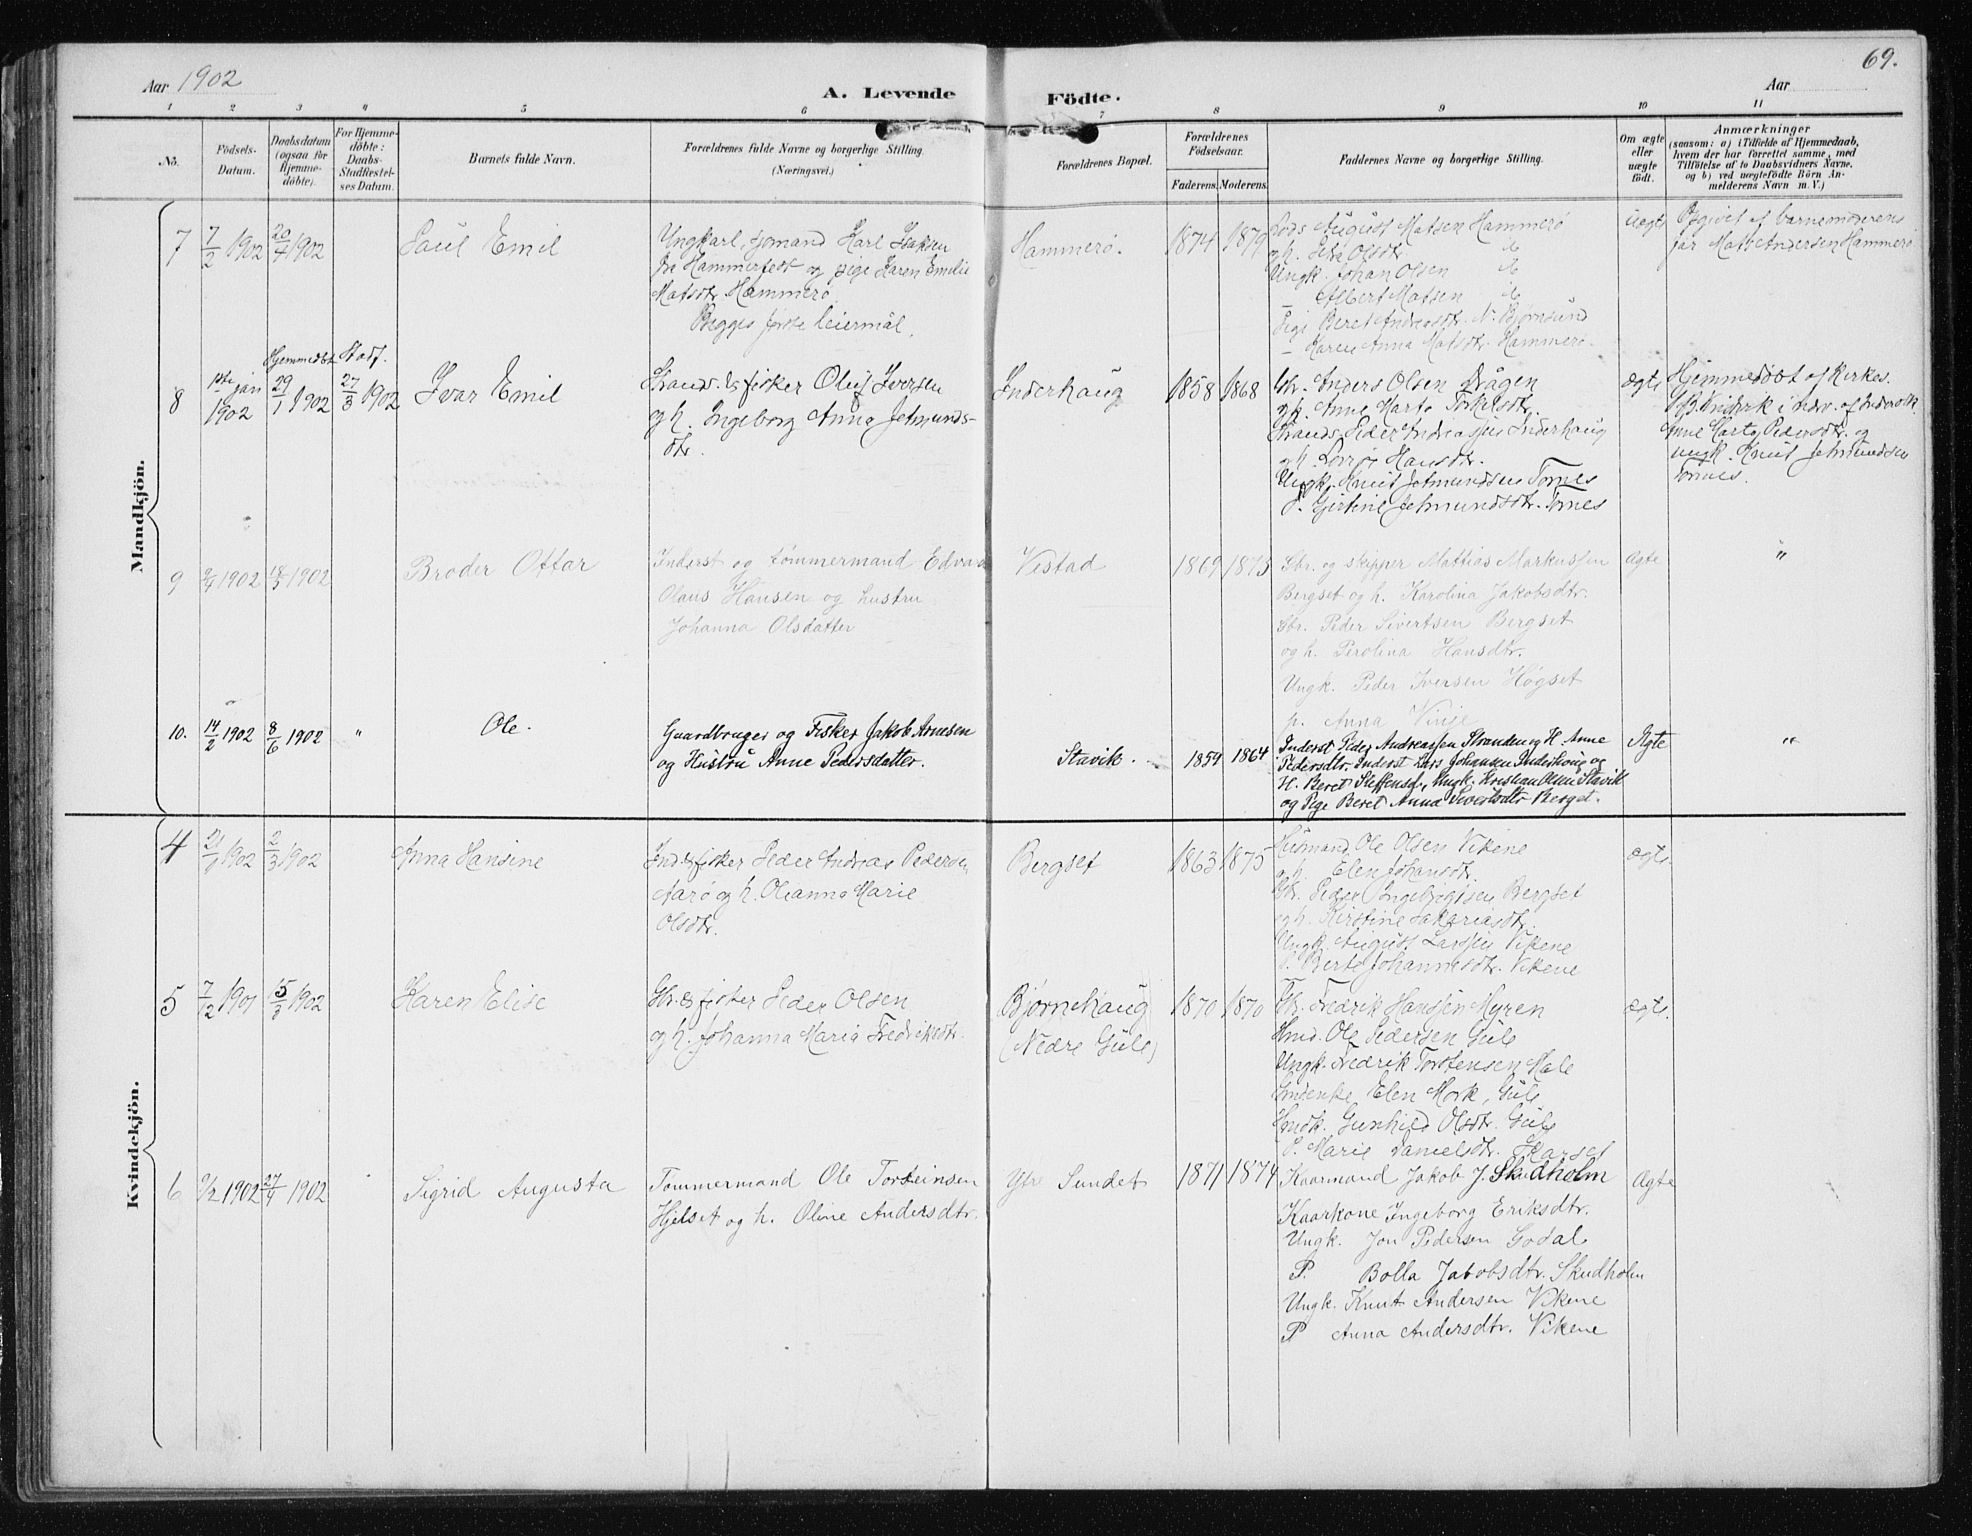 69.
Aar 1902
A. Levende Födte.
Aar
1 2 3 " 5 6 7 8 9 10 11
No.
Födsels-
Datum.
Daabsdatum
(ogsaa for
Hjemme-
döbte).
For Hjemme-
döbte:
Daabs-
Stadfæstel-
ses Datum.
Barnets fulde Navn.
Forældrenes fulde Navne og borgerlige Stilling.
(Næringsvei.)
Forældrenes Bopæl.
Forældrenes
Födselsaar.
Faderens. Moderens.
Faddernes Navne og borgerlige Stilling.
Om ægte
eller
uægte
födt.
Anmærkninger
(saasom: a) i Tilfælde af Hjemmedaab,
hvem der har forrettet samme, med
Tilföielse af to Daabsvidners Navne,
og b) ved uægtefödte Börn An-
melderens Navn m. V.)
Mandkjön.
7
7/2 1902
20/4 1902
Paul Emil
Ungkarl, sjømand Karl Isaksen
fra Hammerfest og pige Karen Emilie
Matsdtr. Hammerø
Begges første leiermål.
Hammerø.
1874 1879
August Matsen Hammerø
og h. Olsdtr.
Ungk. Johan Olsen do
_ Albert Matsen do
Pige Beret Andreasdtr. N. Bjørnsund
_ Karen Anna Matsdtr. Hammerø.
Uegte
Opgivet af barnemoderens
far Mats Andersen Hammerø
8
jan
1902
Hjemmedøbt
29/1 1902
Stadf.
27/3 1902
Ivar Emil
Strands. & fisker Oluf Iversen
og h. Ingeborg Anna Jetmunds-
dtr.
Inderhaug
1858 1868
Gbr. Anders Olsen Drågen
og h. Anne Marta Torkelsdtr.
Strands. Peder Andreassen Inderhaug
og h. Hansdtr.
Ungk. Knut Jetmundsen Tornes
P. Gjertine Jetmundsdtr. Tornes
ægte
Hjemmedøbt af Kirkes.
i nærv. af
Anne Marta Pedersdtr. og
ungk. Knut Jetmundsen
Tornes.
9
1902
18/5 1902
Broder Ottar
Inderst og tømmermand Edvard
Olaus Hansen og hustru
Johanna Olsdatter
Vestad
1869 1873
Gbr. og skipper Mattias Markussen
Bergset og h. Karolina Jakobsdtr.
Gbr. Peder Sivertsen Bergset
og h. Perolina Hansdtr.
Ungk. Peder Iversen Høgset
p. Anna Vinje
Ægte
"
10.
14/2 1902
8/6 1902
"
Ole.
Gaardbruger og Fisker Jakob Arnesen
og Hustru Anne Pedersdatter.
Stavik.
1859 1864
Inderst Peder Andreassen Stranden og H. Anne
Pedersdtr. Inderst Lars Johansen Inderhoug og
H. Beret Steffensd., Ungk. Kristian Olsen Stavik
og Pige Beret Anna Sivertsdtr Berget.
Ægte
"
Kvindekjön.
4
21/1 1902
2/3 1902
Anna Hansine
Ind. & fisker Peder Andreas Pedersen
Aarø og h. Oleanna Marie
Olsdtr.
Bergset
1863 1875
Husmand Ole Olsen Vikene
o. h. Elen Johansdtr.
Gbr. Peder Ingebrigtsen Bergset
og h. Kirstine Sakariasdtr.
Ungk. August Larsen Vikene
P. Berte Johannesdtr. Vikene
ægte.
5
7/12 1901
15/3 1902
Karen Elise
Gbr. & fisker Peder Olsen
og h. Johanna Maria Fredriksdtr.
Bjørnehaug
(Nedre Gule)
1870 1870
Gbr. Fredrik Hanssen Myren
Hmd. Ole Pedersen Gule
Ungk. Fredrik Torstensen Male
Indenke Elen Mork, Gule
Hmdk. Gunhild Olsdtr. Gule
P. Marie Danielsdtr. Skarset
ægte.
6
9/2 1902
27/4 1902
Sigrid Augusta
Tømmermand Ole Torsteinsen
Hjelset og h. Oline Andersdtr.
Ytre Sundet
1871 1874
Kaarmand Jakob J. Skudholm
Kaarkone Ingeborg Eriksdtr.
Ungk. Jon Pedersen Godal
P. Bolla Jakobsdtr. Skudholm
Ungk. Knut Andersen Vikene
P Anna Andersdtr. Vikene
Ægte